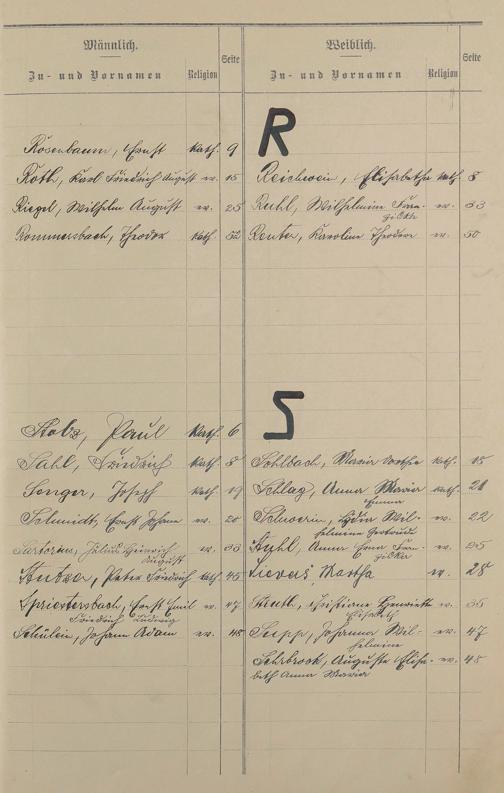 Männlich.
Zu- und Vornamen Religion Seite
Rosenbaum, Ernst kath. 9
Roth, Karl Friedrich August ev. 15
Riegel, Wilhelm August ev. 25
Rommersbach, Theodor kath. 32
Stolz, Paul kath. 6
Sahl, Friedrich kath. 8
Senger, Joseph kath. 19
Schmidt, Ernst Johann ev. 20
Sartorius, Julius Heinrich ev. 33
August
Stutzer, Peter Friedrich kath. 45
Spriestersbach, Ernst Emil ev. 47
Friedrich Ludwig
Schülein, Johann Adam ev. 48
Weiblich.
Zu- und Vornamen Religion Seite
R
Reichwein, Elisabetha kath. 8
Ruhl, Wilhelmine ev. 33
Reuter, Karoline Theodore ev. 50
S
Sohlbach, Maria kath. 15
Schlag, Anna Maria kath. 21
Emma
Schwerin, Lydia Wil- ev. 22
helmine Gertrude
Stuhl, Anna ev. 25
Sievers, Martha ev. 28
Christiane Henriette ev. 35
Elisabeth
Supp, Johanna Wil- ev. 47
helmine
Sehrbrock, Auguste Elisa- ev. 48
beth Anna Maria